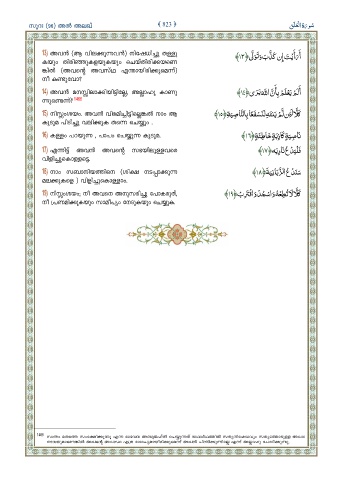 സൂറ: (96) അൽ അലഖ് ﴾ 823 ﴿ سورة العلق
13) അവൻ (ആ വിലക്കുന്നവൻ) നിഷേധിച്ചു തള്ളു
കയും തിരിഞ്ഞുകളയുകയും ചെയ്തിരിക്കയാണെ
ങ്കിൽ (അവന്റെ അവസ്ഥ എന്തായിരിക്കുമെന്ന്)
നീ കണ്ടുവോ?
أَرَأَيْتَ إِن كَذَّبَ وَتَوَلَّىٰ ﴿١٣﴾
14) അവൻ മനസ്സിലാക്കിയിട്ടില്ലേ, അല്ലാഹു കാണു
ന്നുണ്ടെന്ന്?
أَلَمْ يَعْلَم بِأَنَّ اللَّهَ يَرَىٰ ﴿١٤﴾
15) നിസ്സംശയം. അവൻ വിരമിച്ചിട്ടില്ലെങ്കിൽ നാം ആ
കുടുമ പിടിച്ചു വലിക്കുക തന്നെ ചെയ്യും .
كَلَّا لَئِن لَّمْ يَنتَهِ لَنَسْفَعًا بِالنَّاصِيَةِ ﴿١٥﴾
16) കള്ളം പറയുന്ന , പാപം ചെയ്യുന്ന കുടുമ.
نَاصِيَةٍ كَاذِبَةٍ خَاطِئَةٍ ﴿١٦﴾
17) എന്നിട്ട് അവൻ അവന്റെ സഭയിലുള്ളവരെ
വിളിച്ചുകൊള്ളട്ടെ.
فَلْيَدْعُ نَادِيَهُ ﴿١٧﴾
18) നാം സബാനിയത്തിനെ (ശിക്ഷ നടപ്പാക്കുന്ന
മലക്കുകളെ ) വിളിച്ചുകൊള്ളാം.
سَنَدْعُ الزَّبَانِيَةَ ﴿١٨﴾
19) നിസ്സംശയം; നീ അവനെ അനുസരിച്ചു പോകരുത്,
നീ പ്രണമിക്കുകയും സാമീപ്യം നേടുകയും ചെയ്യുക.
كَلَّا لَا تُطِعْهُ وَاسْجُدْ وَاقْتَرِب ﴿١٩﴾